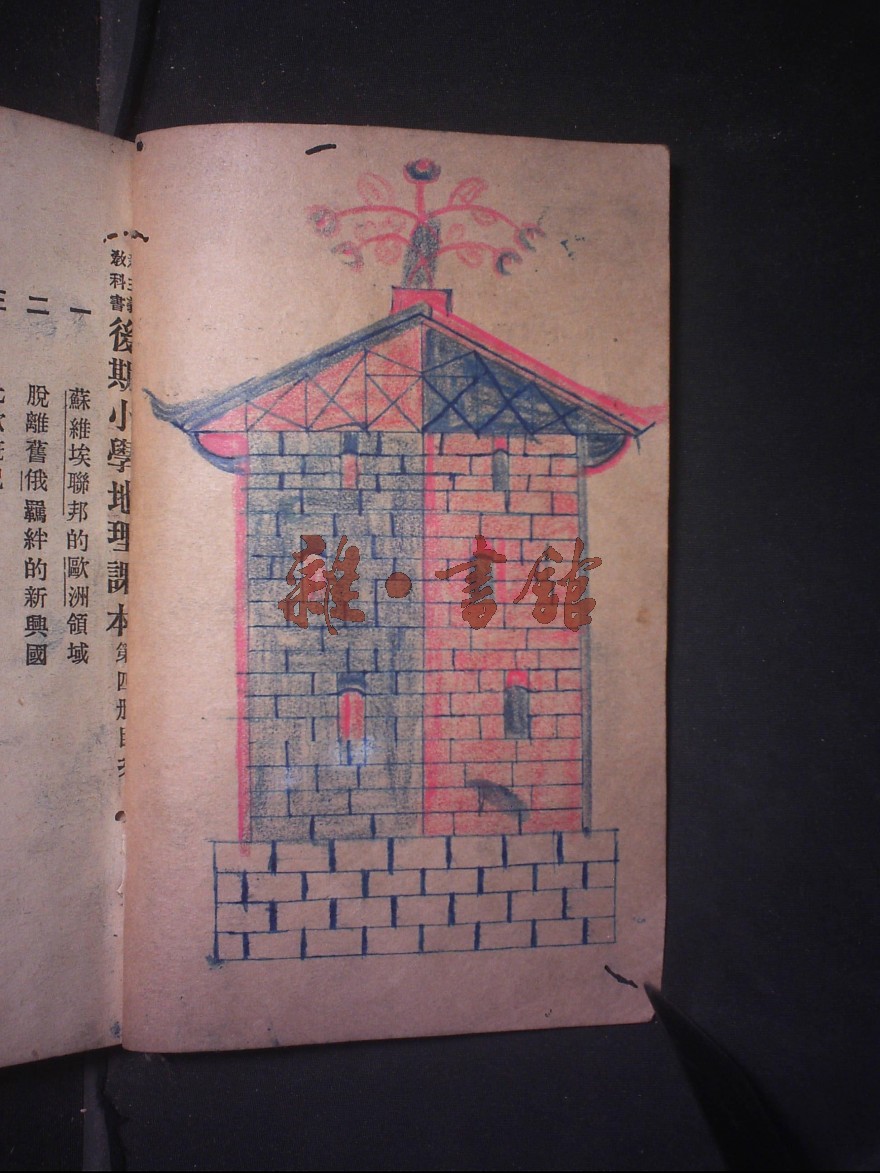 教科書
後期小學地理課本
第四册目次
一　蘇維埃聯邦的歐洲領域
二　脫離舊俄羈絆的新興國
三
雜·書館